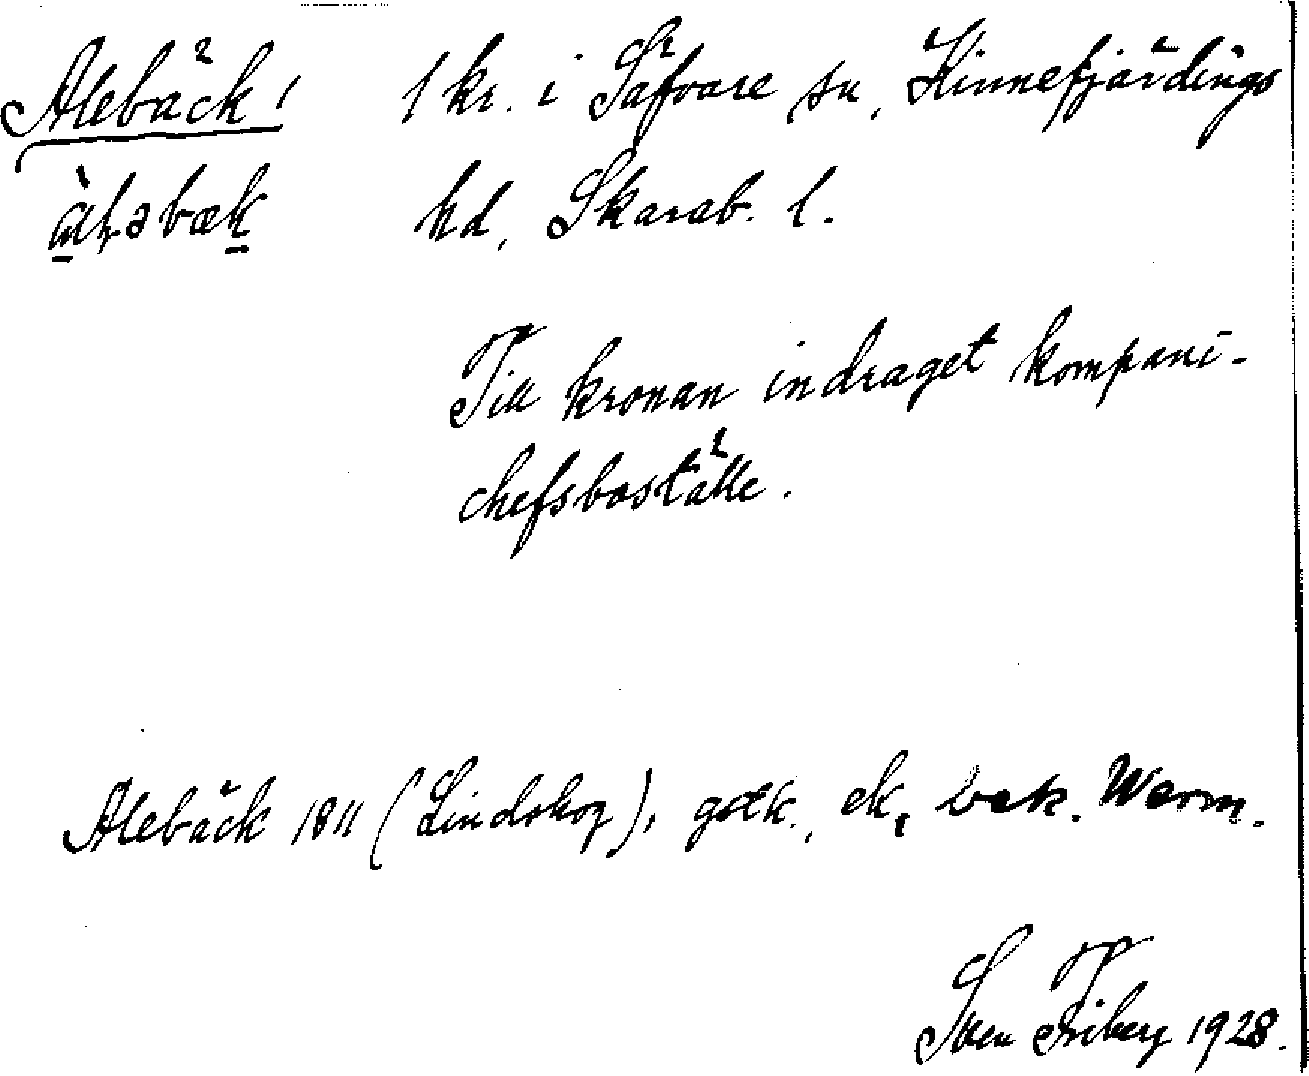 Alebäck, 1 kr. i Säfvare sn, Kinnefjärdings
hd, Skarab. l.
Till kronan indraget kompani-
chefsboställe.
Alebäck 1811 (Lindskog), gsk., ek, bek. Warm.
Sven Friberg 1928.